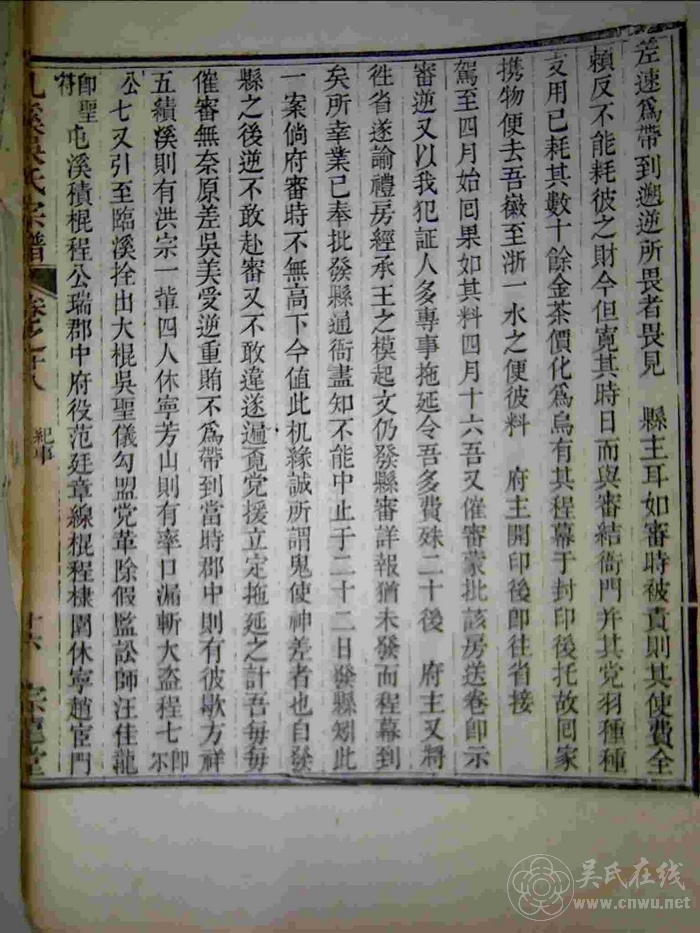 差速爲帶到遡逆所畏者畏見 縣主耳如審時被責則其使費全
賴反不能耗彼之財今但寛其時日而與審結衙門并其党羽種種
支用已耗其數十餘金茶價化爲烏有其程幕于封印後托故囘家
携物便去吾徽至浙一水之便彼料 府主開印後卽徃省接
駕至四月始囘果如其料四月十六吾又催審蒙批該房送卷卽示
審逆又以我犯証人多專事拖延令吾多費妹二十後 府主又將
徃省遂諭禮房經承王之模起文仍發縣審詳報猶未發而程幕到
矣所幸業已奉批發縣通衙盡知不能中止于二十二日發縣矧此
一案倘府審時不無高下今值此机緣誠所謂鬼使神差者也自發
縣之後逆不敢赴審又不敢違遂遍覔党援立定拖延之計吾毎毎
催審無奈原差吳美受逆重賄不爲帶到當時郡中則有彼歙方祥
五績溪則有洪宗一輩四人休寧芳山則有率口漏斬大盗程七卽尓
公七又引至臨溪拴出大棍吳聖儀勾盟党革除假監訟師汪佳龍
卽聖符屯溪積棍程公瑞郡中府役范廷章線棍程棣園休寧趙宦門
溪吳氏宗譜
卷之十八
紀事
十六
吴氏在线
www.cnwu.net